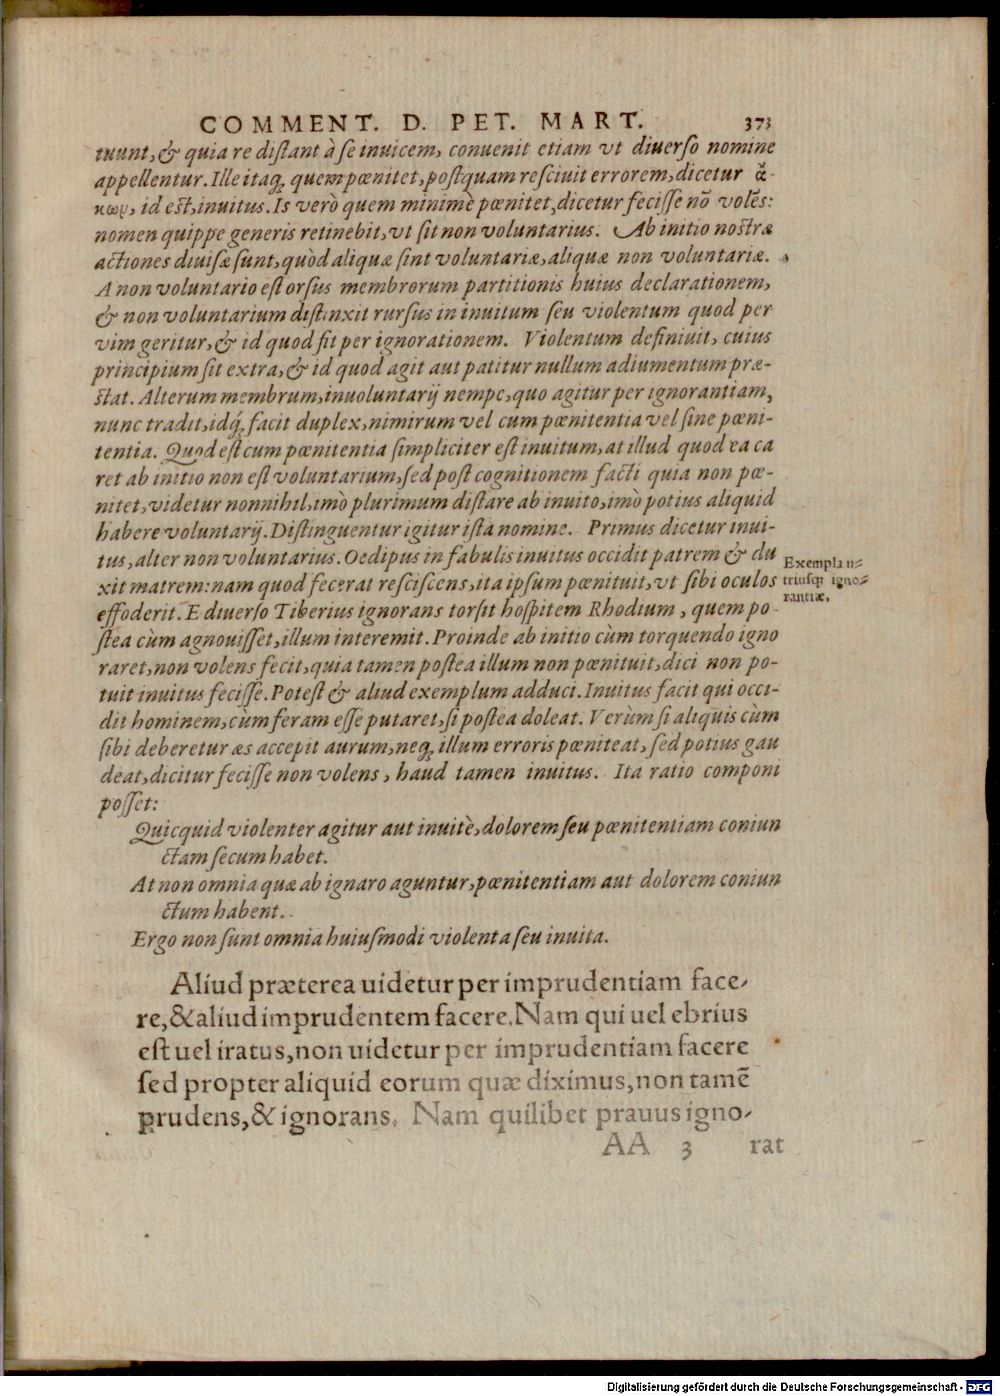 COMMENT. D. PET. MART. 373
tuunt, & quia re distant à se inuicem, conuenit etiam vt diuerso nomine
appellentur. Ille itaq; quem pœnitet, postquam resciuit errorem, dicetur ἄ-
κων, id est, inuitus. Is verò quem minimè pœnitet, dicetur fecisse nõ volẽs:
nomen quippe generis retinebit, vt sit non voluntarius. Ab initio nostræ
actiones diuisæ sunt, quòd aliquæ sint voluntariæ, aliquæ non voluntariæ.
A non voluntario est orsus membrorum partitionis huius declarationem,
& non voluntarium distinxit rursus in inuitum seu violentum quod per
vim geritur, & id quod fit per ignorationem. Violentum definiuit, cuius
principium sit extra, & id quod agit aut patitur nullum adiumentum præ-
stat. Alterum membrum, inuoluntarij nempe, quo agitur per ignorantiam,
nunc tradit, idq́; facit duplex, nimirum vel cum pœnitentia vel sine pœni-
tentia. Quod est cum pœnitentia simpliciter est inuitum, at illud quod ea ca
ret ab initio non est voluntarium, sed post cognitionem facti quia non pœ-
nitet, videtur nonnihil, imò plurimum distare ab inuito, imò potius aliquid
habere voluntarij. Distinguentur igitur ista nomine. Primus dicetur inui-
tus, alter non voluntarius. Oedipus in fabulis inuitus occidit patrem & du
xit matrem: nam quod fecerat resciscens, ita ipsum pœnituit, vt sibi oculos
effoderit. E diuerso Tiberius ignorans torsit hospitem Rhodium, quem po-
stea cùm agnouisset, illum interemit. Proinde ab initio cùm torquendo igno
raret, non volens fecit, quia tamen postea illum non pœnituit, dici non po-
tuit inuitus fecisse. Potest & aliud exemplum adduci. Inuitus facit qui occi-
dit hominem, cùm feram esse putaret, si postea doleat. Verùm si aliquis cùm
sibi deberetur æs accepit aurum, neq; illum erroris pœniteat, sed potius gau
deat, dicitur fecisse non volens, haud tamen inuitus. Ita ratio componi
posset:
Exempla u-
triusq; igno-
rantiæ.
Quicquid violenter agitur aut inuitè, dolorem seu pœnitentiam coniun
ctam secum habet.
At non omnia quæ ab ignaro aguntur, pœnitentiam aut dolorem coniun
ctum habent.
Ergo non sunt omnia huiusmodi violenta seu inuita.
Aliud præterea uidetur per imprudentiam face-
re, & aliud imprudentem facere. Nam qui uel ebrius
est uel iratus, non uidetur per imprudentiam facere
sed propter aliquid eorum quæ diximus, non tamẽ
prudens, & ignorans. Nam quilibet prauus igno-
AA 3 rat
Digitalisierung gefördert durch die Deutsche Forschungsgemeinschaft - DFG